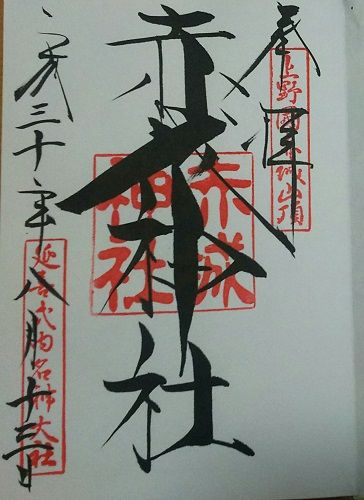 奉拝
上野國赤城山頂
赤城神社
赤城神社
平成三十年八月十三日
延喜式内名神大社